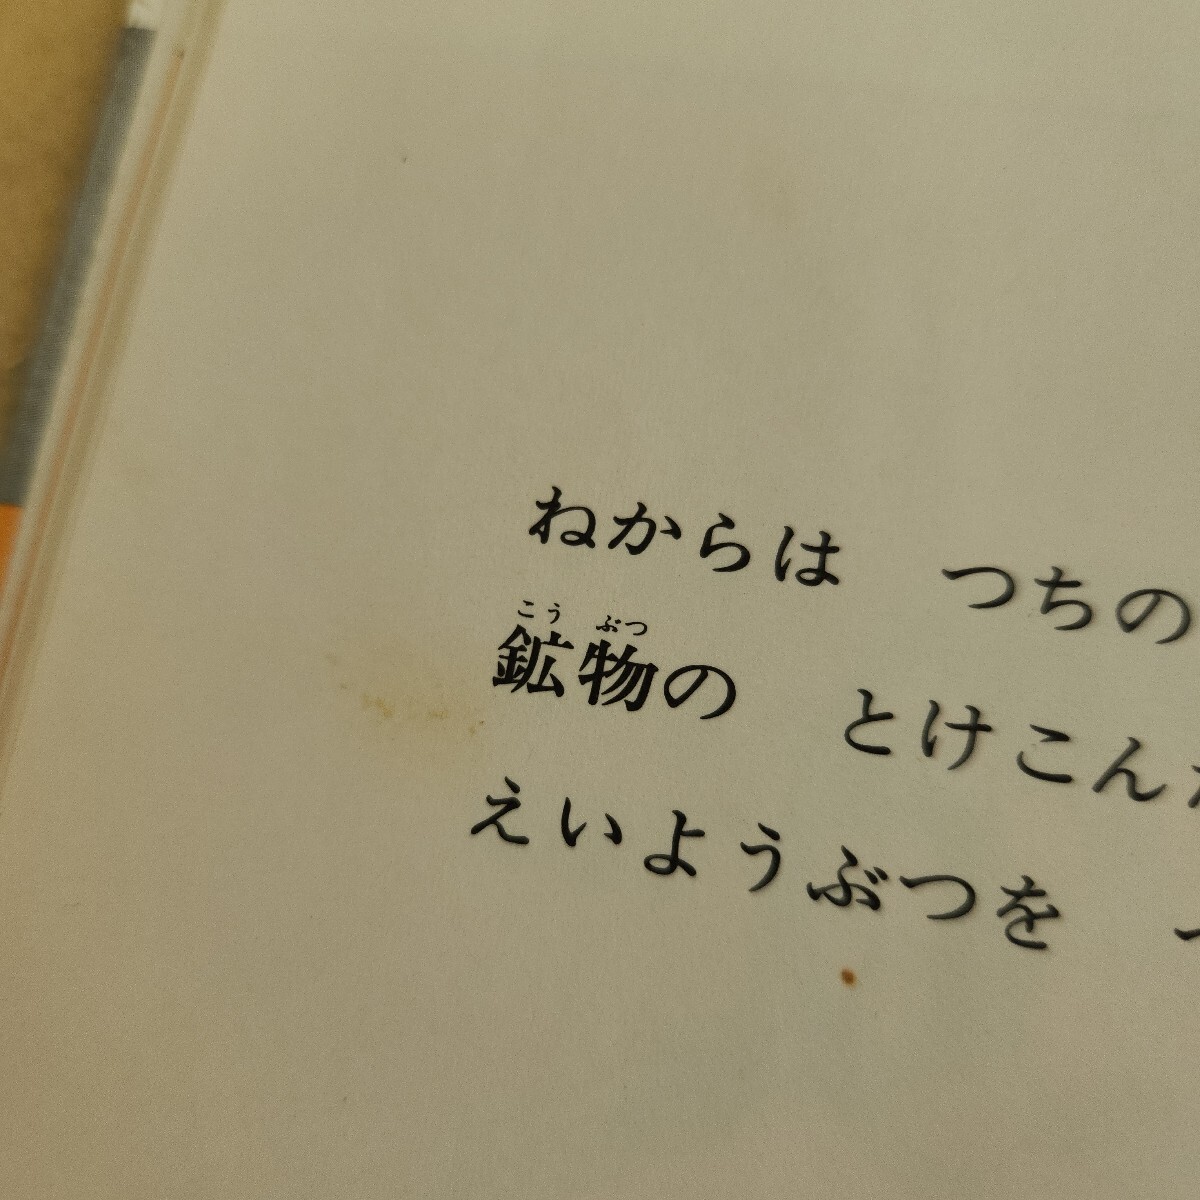 ねからは　つちの
こう ぶつ
鉱物の　とけこん
えいようぶつを